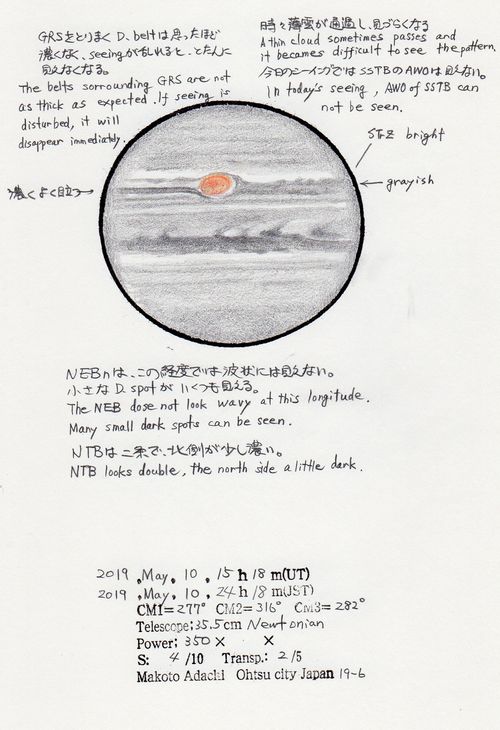 GRSをとりまくD. beltは思ったほど
濃くなく、seeingが乱れると、とたんに
見えなくなる。
The belts sorrounding GRS are not
as thick as expected. If seeing is
disturbed, it will
disappear immediately.
時々薄雲が通過し、見づらくなる
A thin cloud sometimes passes and
it becomes difficult to see the pattern.
今日のシーイングではSSTBのAWOは見えない。
In today's seeing, AWO of SSTB can
not be seen.
STZ bright
濃くよく目立つ→
← grayish
NEBnは、この経度では波状には見えない。
小さなD. spotがいくつも見える。
The NEB dose not look wavy at this longitude.
Many small dark spots can be seen.
NTBは二条で、北側が少し濃い。
NTB looks double, the north side a little dark.
2019 ,May, 10 , 15 h 18 m(UT)
2019 ,May, 10 , 24 h 18 m(JST)
CM1=277° CM2=316° CM3=282°
Telescope:35.5cm Newtonian
Power: 350 × ×
S: 4 /10 Transp.: 2 /5
Makoto Adachi Ohtsu city Japan 19-6